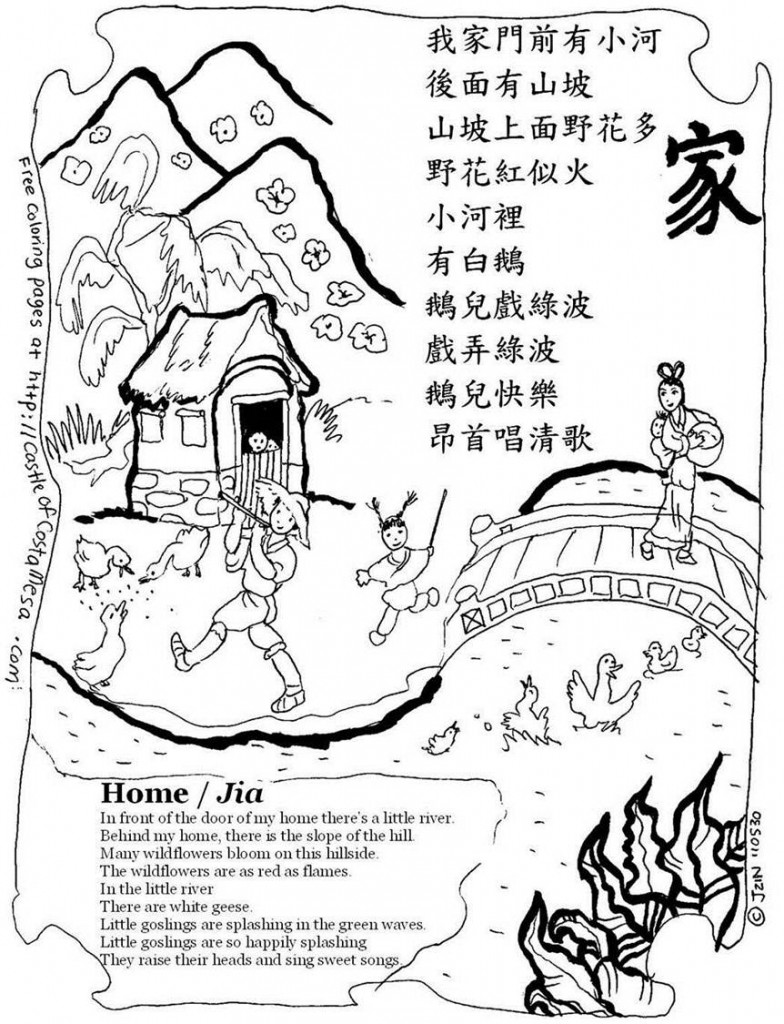 我家門前有小河
後面有山坡
山坡上面野花多
野花紅似火
小河裡
有白鵝
鵝兒戲綠波
戲弄綠波
鵝兒快樂
昂首唱清歌
家
Free coloring pages at http://CastleofCostaMesa.com!
Home / Jia
In front of the door of my home there's a little river.
Behind my home, there is the slope of the hill.
Many wildflowers bloom on this hillside.
The wildflowers are as red as flames.
In the little river
There are white geese.
Little goslings are splashing in the green waves.
Little goslings are so happily splashing
They raise their heads and sing sweet songs.
© JZIN 110530